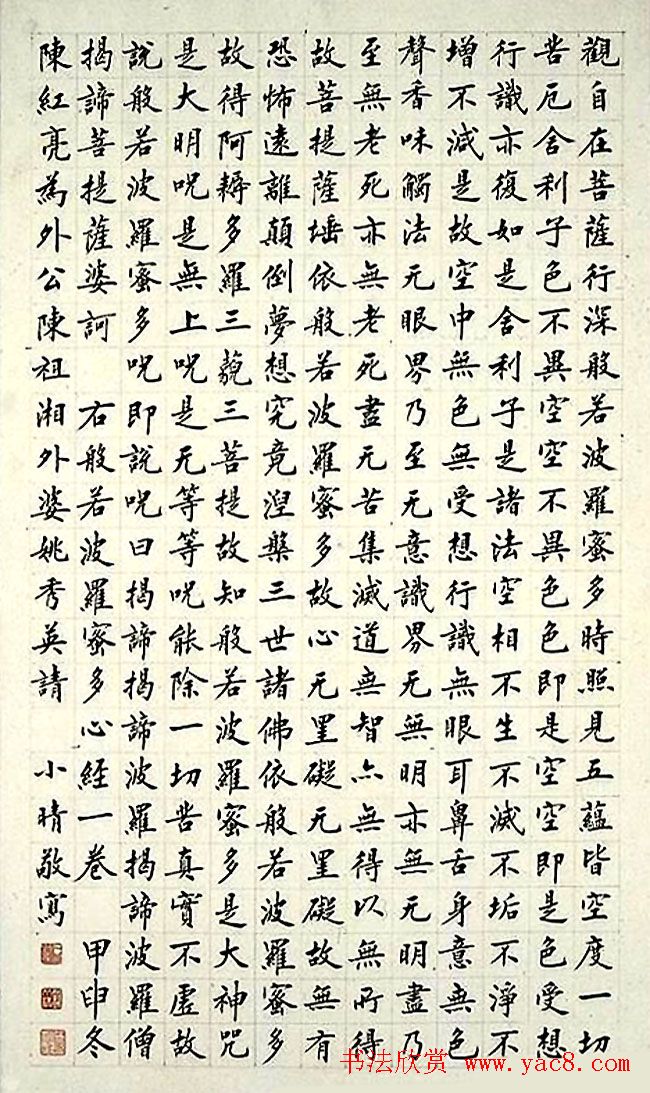 觀自在菩薩行深般若波羅蜜多時照見五蘊皆空度一切
苦厄舍利子色不異空空不異色色即是空空即是色受想
行識亦復如是舍利子是諸法空相不生不滅不垢不淨不
增不減是故空中無色無受想行識無眼耳鼻舌身意無色
聲香味觸法无眼界乃至无意識界无無明亦無无明盡乃
至無老死亦無老死盡无苦集滅道無智亦無得以無所得
故菩提薩埵依般若波羅蜜多故心无罣礙无罣礙故無有
恐怖遠離顛倒夢想究竟湼槃三世諸佛依般若波羅蜜多
故得阿耨多羅三藐三菩提故知般若波羅蜜多是大神咒
是大明呪是無上呪是无等等呪能除一切苦真實不虛故
說般若波羅蜜多呪即說呪曰揭諦揭諦波羅揭諦波羅僧
揭諦菩提薩婆訶 右般若波羅蜜多心經一卷 甲申冬
陳紅亮為外公陳祖湘外婆姚秀英請 小晴敬寫
书法欣赏 www.yac8.com